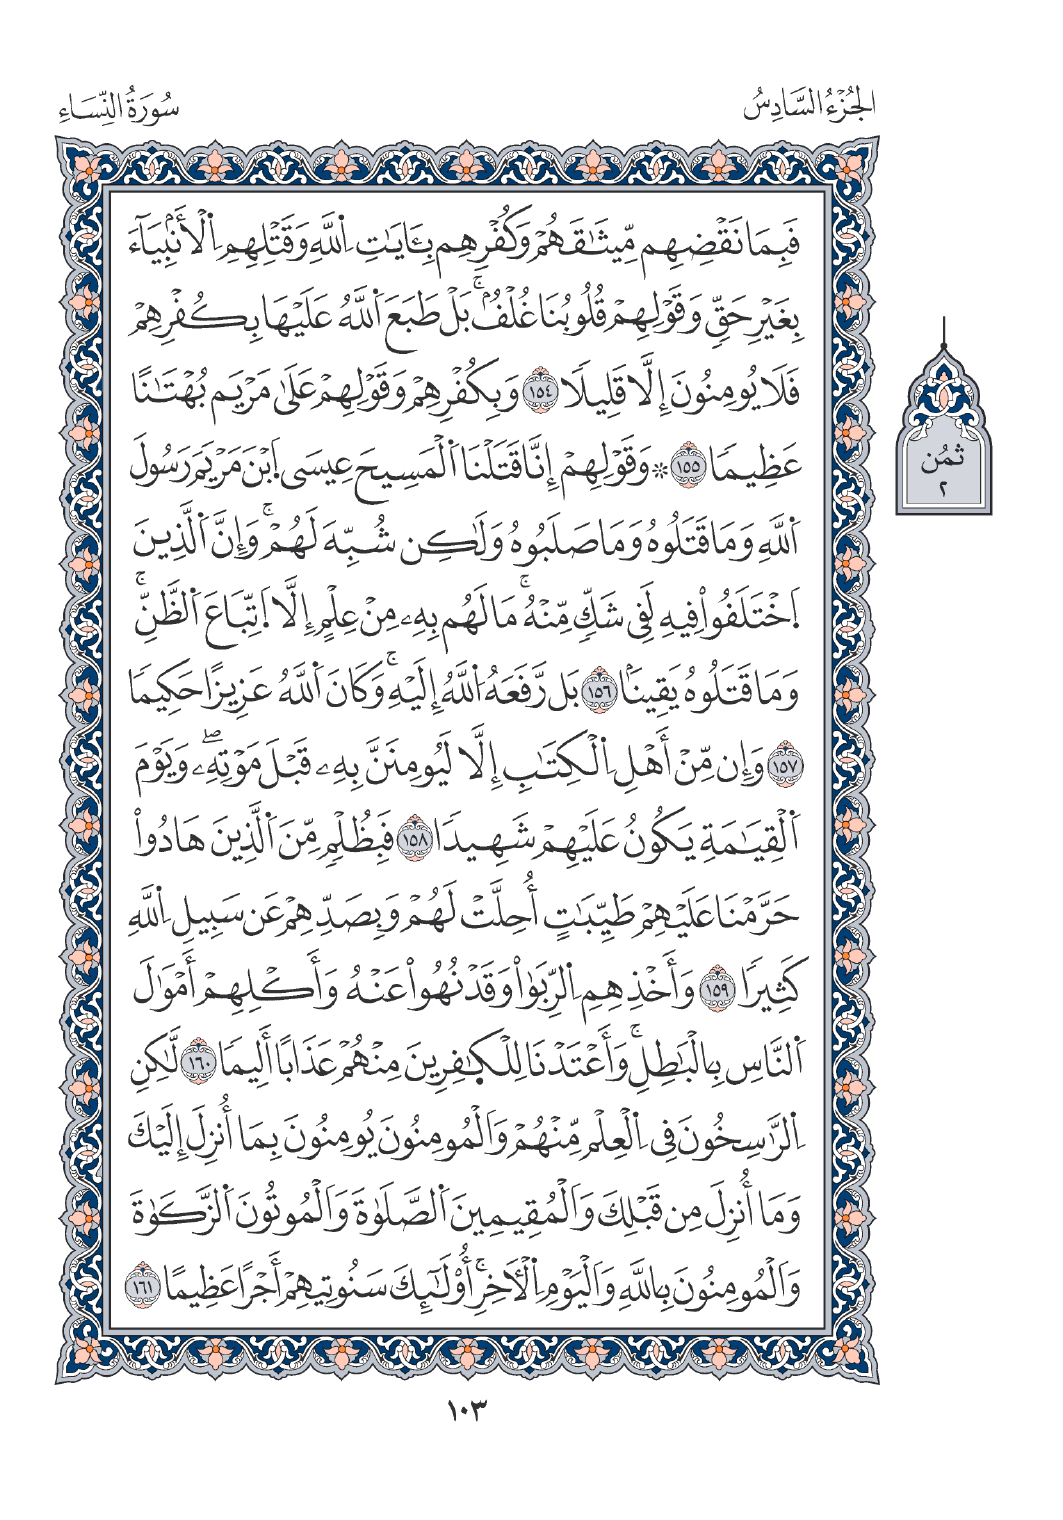 الجُزْءُ السَّادِسُ
سُورَةُ النِّسَاءِ
فَبِمَا نَقْضِهِم مِّيثَٰقَهُمْ وَكُفْرِهِم بِـَٔايَٰتِ اِ۬للَّهِ وَقَتْلِهِمِ اِ۬لْأَنۢبِيَآءَ
بِغَيْرِ حَقّٖ وَقَوْلِهِمْ قُلُوبُنَا غُلْفُۢۚ بَلْ طَبَعَ اَ۬للَّهُ عَلَيْهَا بِكُفْرِهِمْ
فَلَا يُومِنُونَ إِلَّا قَلِيلٗا ١٥٤ وَبِكُفْرِهِمْ وَقَوْلِهِمْ عَلَىٰ مَرْيَمَ بُهْتَٰنًا
عَظِيمٗا ١٥٥ ۞ وَقَوْلِهِمْ إِنَّا قَتَلْنَا اَ۬لْمَسِيحَ عِيسَى اَ۪بْنَ مَرْيَمَ رَسُولَ
اَ۬للَّهِ وَمَا قَتَلُوهُ وَمَا صَلَبُوهُ وَلَٰكِن شُبِّهَ لَهُمْۚ وَإِنَّ اَ۬لَّذِينَ
اَ۪خْتَلَفُواْ فِيهِ لَفِي شَكّٖ مِّنْهُۚ مَا لَهُم بِهِۦ مِنْ عِلْمٍ إِلَّا اَ۪تِّبَاعَ اَ۬لظَّنِّۚ
وَمَا قَتَلُوهُ يَقِينَۢا ١٥٦ بَل رَّفَعَهُ اُ۬للَّهُ إِلَيْهِۚ وَكَانَ اَ۬للَّهُ عَزِيزًا حَكِيمٗا
١٥٧ وَإِن مِّنْ أَهْلِ اِ۬لْكِتَٰبِ إِلَّا لَيُومِنَنَّ بِهِۦ قَبْلَ مَوْتِهِۦۖ وَيَوْمَ
اَ۬لْقِيَٰمَةِ يَكُونُ عَلَيْهِمْ شَهِيدٗا ١٥٨ فَبِظُلْمٖ مِّنَ اَ۬لَّذِينَ هَادُواْ
حَرَّمْنَا عَلَيْهِمْ طَيِّبَٰتٍ أُحِلَّتْ لَهُمْ وَبِصَدِّهِمْ عَن سَبِيلِ اِ۬للَّهِ
كَثِيرٗا ١٥٩ وَأَخْذِهِمِ اِ۬لرِّبَوٰاْ وَقَدْ نُهُواْ عَنْهُ وَأَكْلِهِمْ أَمْوَٰلَ
اَ۬لنَّاسِ بِالْبَٰطِلِۚ وَأَعْتَدْنَا لِلْكٰفِرِينَ مِنْهُمْ عَذَابًا أَلِيمٗا ١٦٠ لَّٰكِنِ
اِ۬لرَّٰسِخُونَ فِي اِ۬لْعِلْمِ مِنْهُمْ وَالْمُومِنُونَ يُومِنُونَ بِمَا أُنزِلَ إِلَيْكَ
وَمَا أُنزِلَ مِن قَبْلِكَ وَالْمُقِيمِينَ اَ۬لصَّلَوٰةَ وَالْمُوتُونَ اَ۬لزَّكَوٰةَ
وَالْمُومِنُونَ بِاللَّهِ وَالْيَوْمِ اِ۬لْأٓخِرِۚ أُوْلَٰٓئِكَ سَنُوتِيهِمْ أَجْرًا عَظِيمًا ١٦١
ثمُن
٢
١٠٣